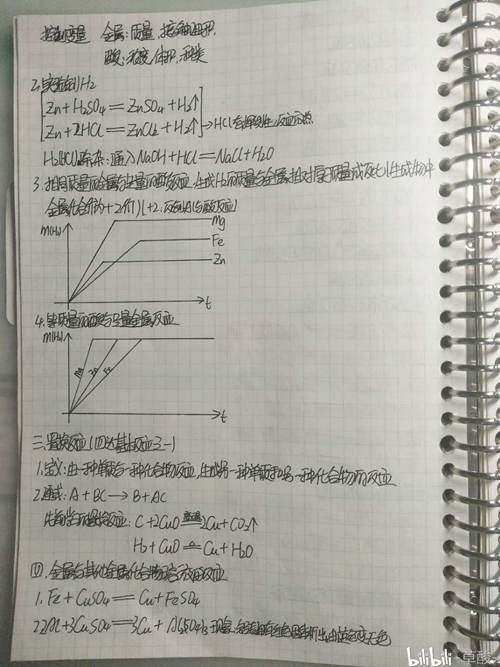 控制变量 金属:质量,接触面积
酸:浓度,体积,种类
2.实验室制H₂
Zn+H₂SO₄=ZnSO₄+H₂↑
Zn+2HCl=ZnCl₂+H₂↑→HCl有挥发性,反应
H₂(HCl)除杂:通入NaOH+HCl=NaCl+H₂O
3.相同质量的金属与足量的酸反应,生成H₂的质量与金属相对原子质量成反比(生成物中
金属化合价为+2价)
m(H₂)
Mg
Fe
Zn
t
4.等质量的酸与足量金属反应
m(H₂)
Mg Zn Fe
t
三.置换反应(四大基本反应之一)
1.定义:由一种单质与一种化合物反应,生成另一种单质和另一种化合物的反应
2.通式:A+BC→B+AC
先前学的置换反应:C+2CuO=高温=2Cu+CO₂↑
H₂+CuO=△=Cu+H₂O
四.金属与其他金属化合物溶液的反应
1.Fe+CuSO₄=Cu+FeSO₄
2.2Al+3CuSO₄=3Cu+Al₂(SO₄)₃ 现象:铝表面有红色固体析出,由蓝色变无色
bilibili